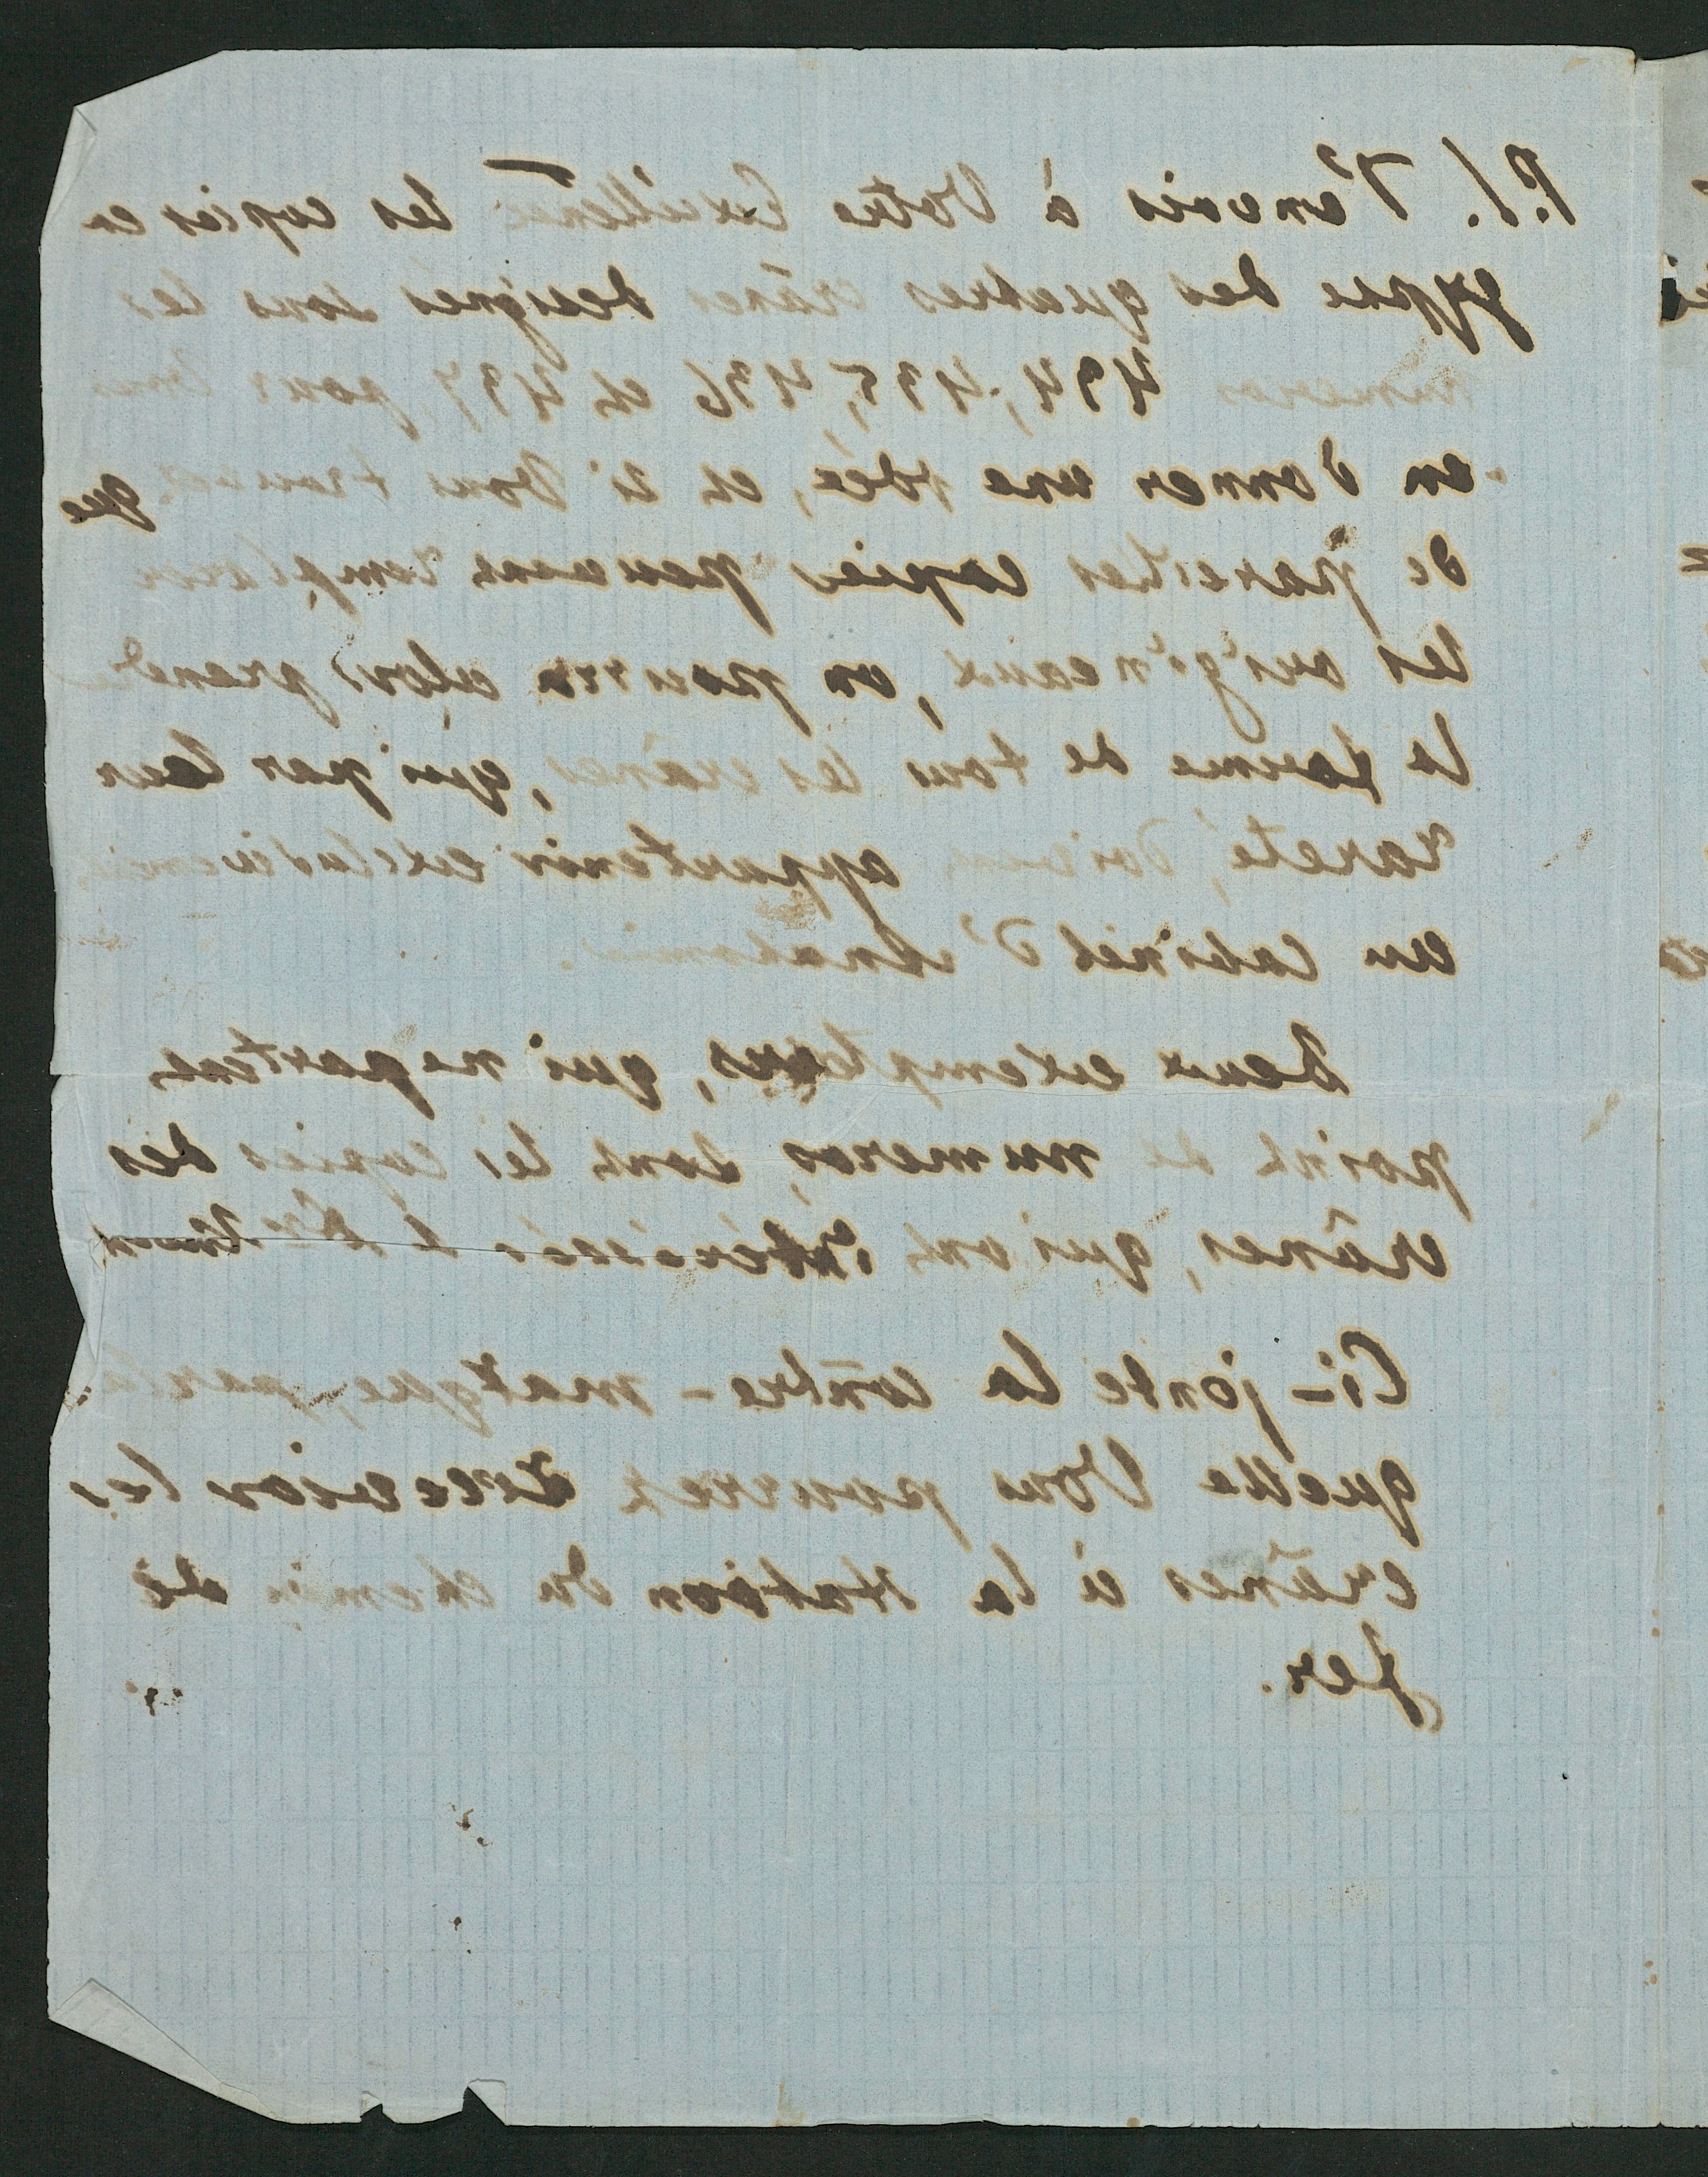 P.S. J'envois à Votre Excellence les copies en
gypse des quatres crânes designés sous les
numeros 494, 495, 496 et 497 pour Vous
en donner une idée, et si Vous trouvez que
de pareilles copies peuvent remplacer
les originaux, on pourra alors prendre
la forme de tous les crânes, qui par leur
rareté, doivent appartenir exclusivement
au cabinet d'Anatomie.
Deux exemplaires, qui ne portent
point de numeros, sont les copies des
crânes, qui ont intéressés
Ci-jointe la contre-marque, par la
quelle Vous pourrez recevoir les
crânes à la station du chemin de
fer.